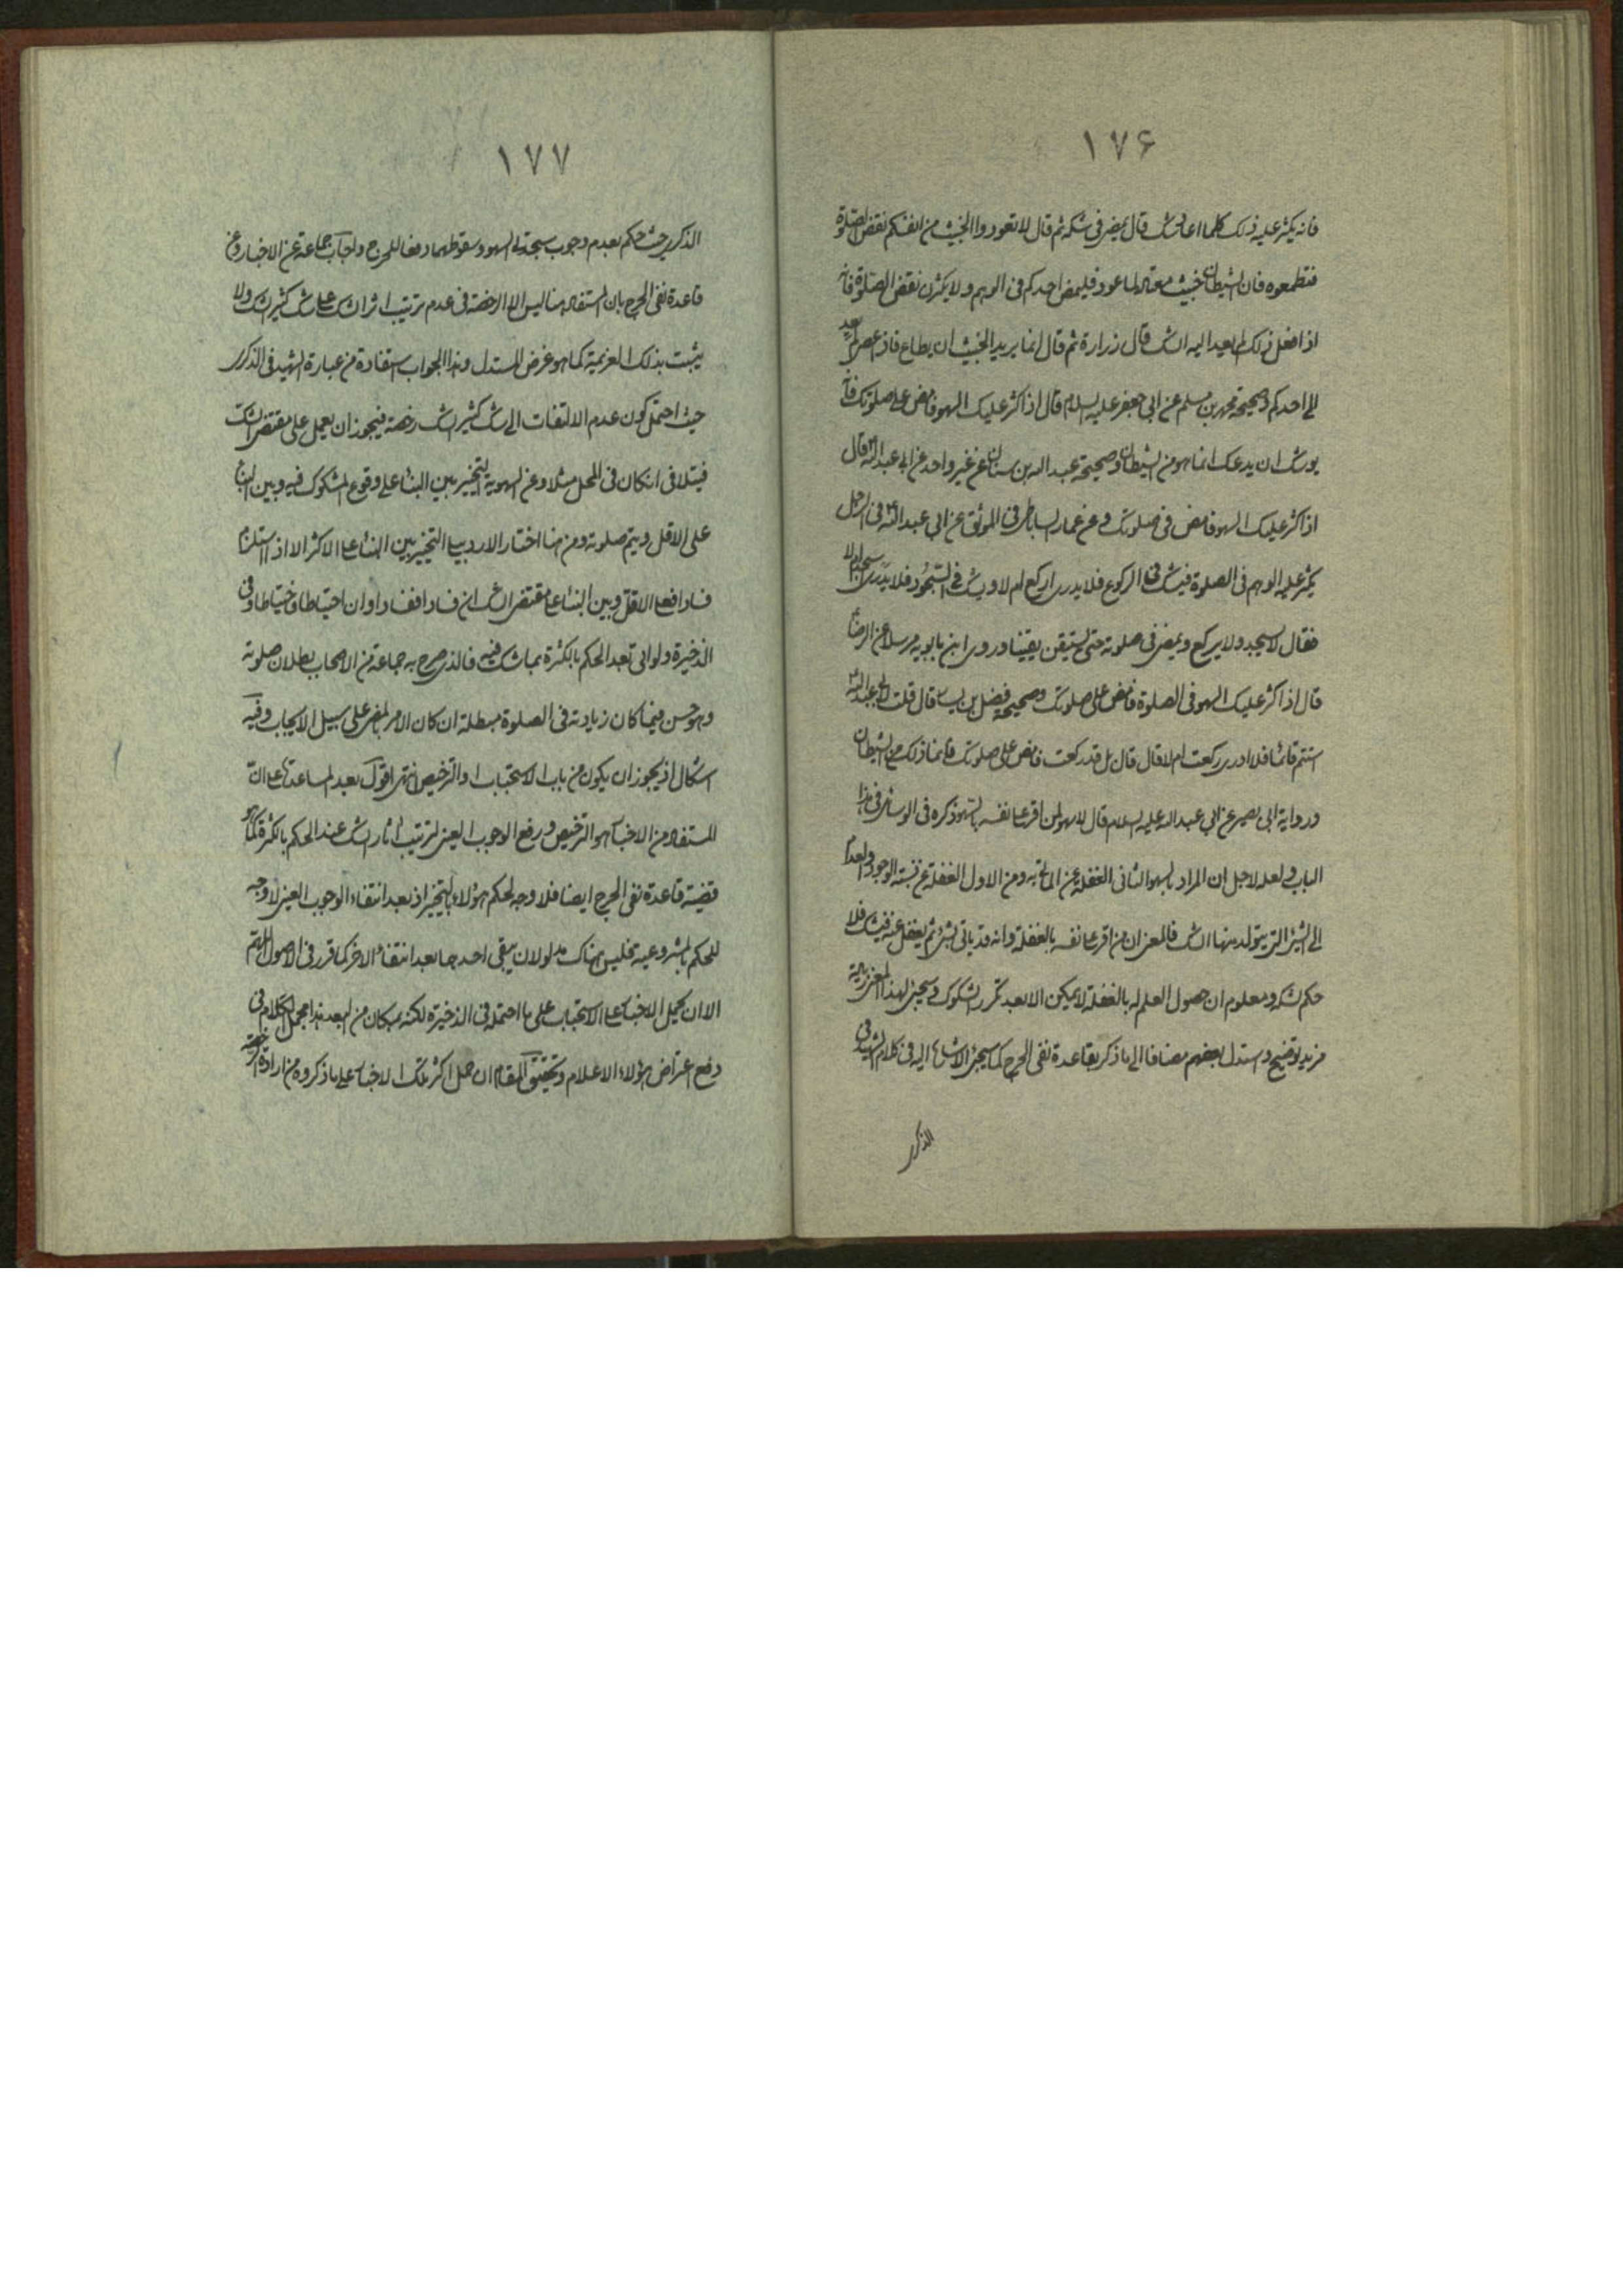 ١٧۶
فانه يكثر عليه ذلك كلما اعاد شك قال يمضى فى شكه ثم قال لا تعودوا الخبيث من انفسكم نقض الصلوة
فتطمعوه فان الشيطان خبيث معتاد لما عود فليمض احدكم فى الوهم ولا يكثرن نقض الصلوة فانه
اذا فعل ذلك لم يعد اليه الشك قال زرارة ثم قال انما يريد الخبيث ان يطاع فاذا عصى لم يعد
الى احدكم وصحيحة محمد بن مسلم عن ابى جعفر عليه السلام قال اذا كثر عليك السهو فامض على صلوتك فانه
يوشك ان يدعك انما هو من الشيطان وصحيحة عبد الله بن سنان عن غير واحد عن ابى عبد الله قال
اذا كثر عليك السهو فامض فى صلوتك وعن عمار الساباطى فى الموثق عن ابى عبد الله فى الرجل
يكثر عليه الوهم فى الصلوة فيشك فى الركوع فلا يدرى اركع ام لا ويشك فى السجود فلا يدرى اسجد ام لا
فقال لا يسجد ولا يركع ويمضى فى صلوته حتى يستيقن يقينا وروى ابن بابويه مرسلا عن الرضا
قال اذا كثر عليك السهو فى الصلوة فامض على صلوتك وصحيحة فضيل بن يسار قال قلت لابى عبد الله
استتم قائما فلا ادرى ركعت ام لا قال قال بل قد ركعت فامض على صلوتك فانما ذلك من الشيطان
ورواية ابى بصير عن ابى عبد الله عليه السلام قال لا سهو لمن اقر على نفسه بالسهو ذكره فى الوسائل فى هذا
الباب ولعله لاجل ان المراد بالسهو الثانى الغفلة عن الماتى به ومن الاول الغفلة عن نسبته الوجود والعدم
الى الشئ التى يتولد منها الشك فالمعنى ان من اقر على نفسه بالغفلة وانه قد ياتى بشئ ثم يغفل عنه فيشك فلا
حكم لشكه ومعلوم ان حصول العلم له بالغفلة لا يمكن الا بعد تكرر الشكوك وسيجئ لهذا المعنى زيادة
مزيد توضيح واستدل بعضهم مضافا الى ما ذكر بقاعدة نفى الحرج كما سيجئ الاشارة اليه فى كلام الشهيد فى
الذكرى
١٧٧
الذكرى حيث حكم بعدم وجوب سجدتى السهو وسقوطهما دفعا للحرج واجاب جماعة عن الاخبار وعن
قاعدة نفى الحرج بان المستفاد منها ليس الا الرخصة فى عدم ترتيب اثر الشك على شك كثير الشك ولا
يثبت بذلك العزيمة كما هو غرض المستدل وهذا الجواب استفادة من عبارة الشهيد فى الذكرى
حيث احتمل كون عدم الالتفات الى شك كثير الشك رخصة فيجوز ان يعمل على مقتضى الشك
فيتلافى ان كان فى المحل مثلا وعن السهوية التخيير بين البناء على وقوع المشكوك فيه وبين البناء
على الاقل ويتم صلوته ومن هنا اختار الاردبيلى التخيير بين البناء على الاكثر الا اذا استلزم
فسادا فعلى الاقل وبين البناء على مقتضى الشك ان فسادا ففسادا وان احتياطا فاحتياطا وفى
الذخيرة ولو اتى بعد الحكم بالكثرة بما شك فيه فالذى صرح به جماعة من الاصحاب بطلان صلوته
وهو حسن فيما كان زيادته فى الصلوة مبطلة ان كان الامر بالمضى على سبيل الايجاب وفيه
اشكال اذ يجوز ان يكون من باب الاستحباب او الترخيص انتهى اقول بعد المساعدة على ان
المستفاد من الاخبار هو الترخيص ورفع الوجوب العينى لترتيب اثار الشك عند الحكم بالكثرة كما هو
قضية قاعدة نفى الحرج ايضا فلا وجه لحكم هؤلاء بالتخيير اذ بعد انتفاء الوجوب العينى لا وجه
للحكم بالمشروعية فليس هناك مدلولان يبقى احدهما بعد انتفاء الاخر كما قرر فى الاصول اللهم
الا ان يحمل الاخبار على الاستحباب على ما احتمله فى الذخيرة لكنه بمكان من البعد هذا مجمل الكلام فى
دفع اعتراض هؤلاء الاعلام وتحقيق المقام ان حمل اكثر تلك الاخبار على ما ذكروه من ارادة الرخصة